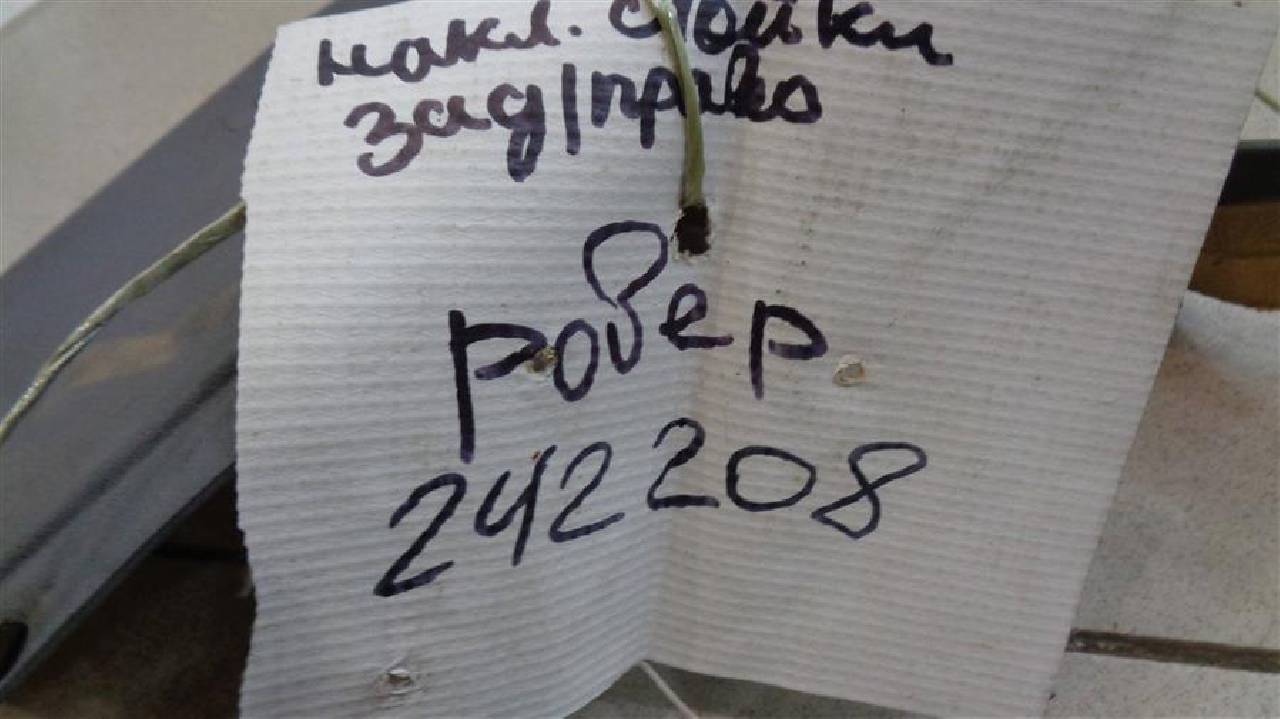 накл. стойки
зад/право
ровер
242208